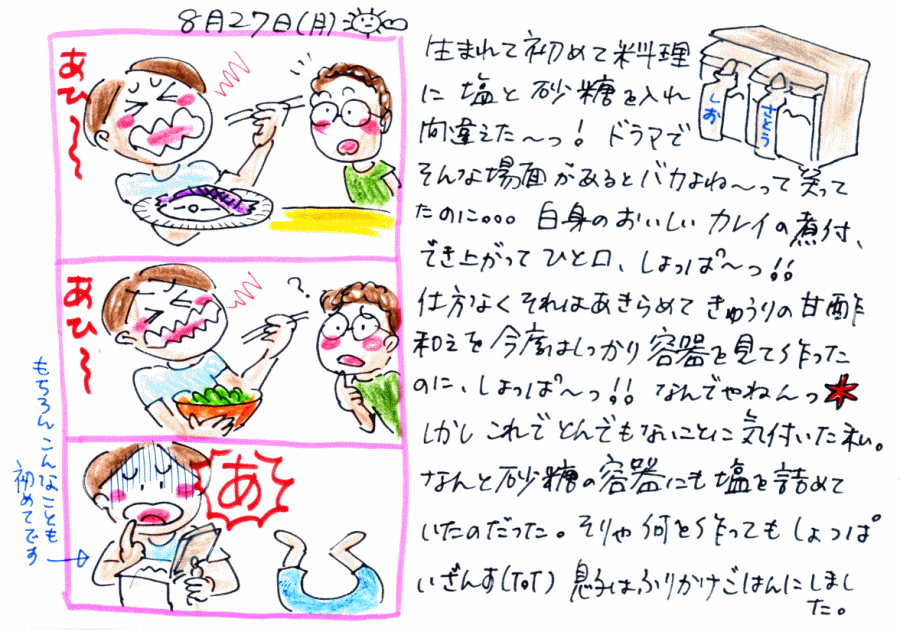 8月27日(月)
あひ〜
あひ〜
?
あ
もちろんこんなことも
初めてです
しお
さとう
生まれて初めて料理
に塩と砂糖を入れ
間違えた〜っ！ドラマで
そんな場面があるとバカよね〜って笑って
たのに。。。自身のおいしいカレイの煮付、
でき上がってひと口、しょっぱ〜っ!!
仕方なくそれはあきらめてきゅうりの甘酢
和えを今度はしっかり容器を見て作った
のに、しょっぱ〜っ!!なんでやねんっ
しかしこれでとんでもないことに気付いた私。
なんと砂糖の容器にも塩を詰めて
いたのだった。そりゃ何を作ってもしょっぱ
いざんす(ToT) 息子はふりかけごはんにしまし
た。